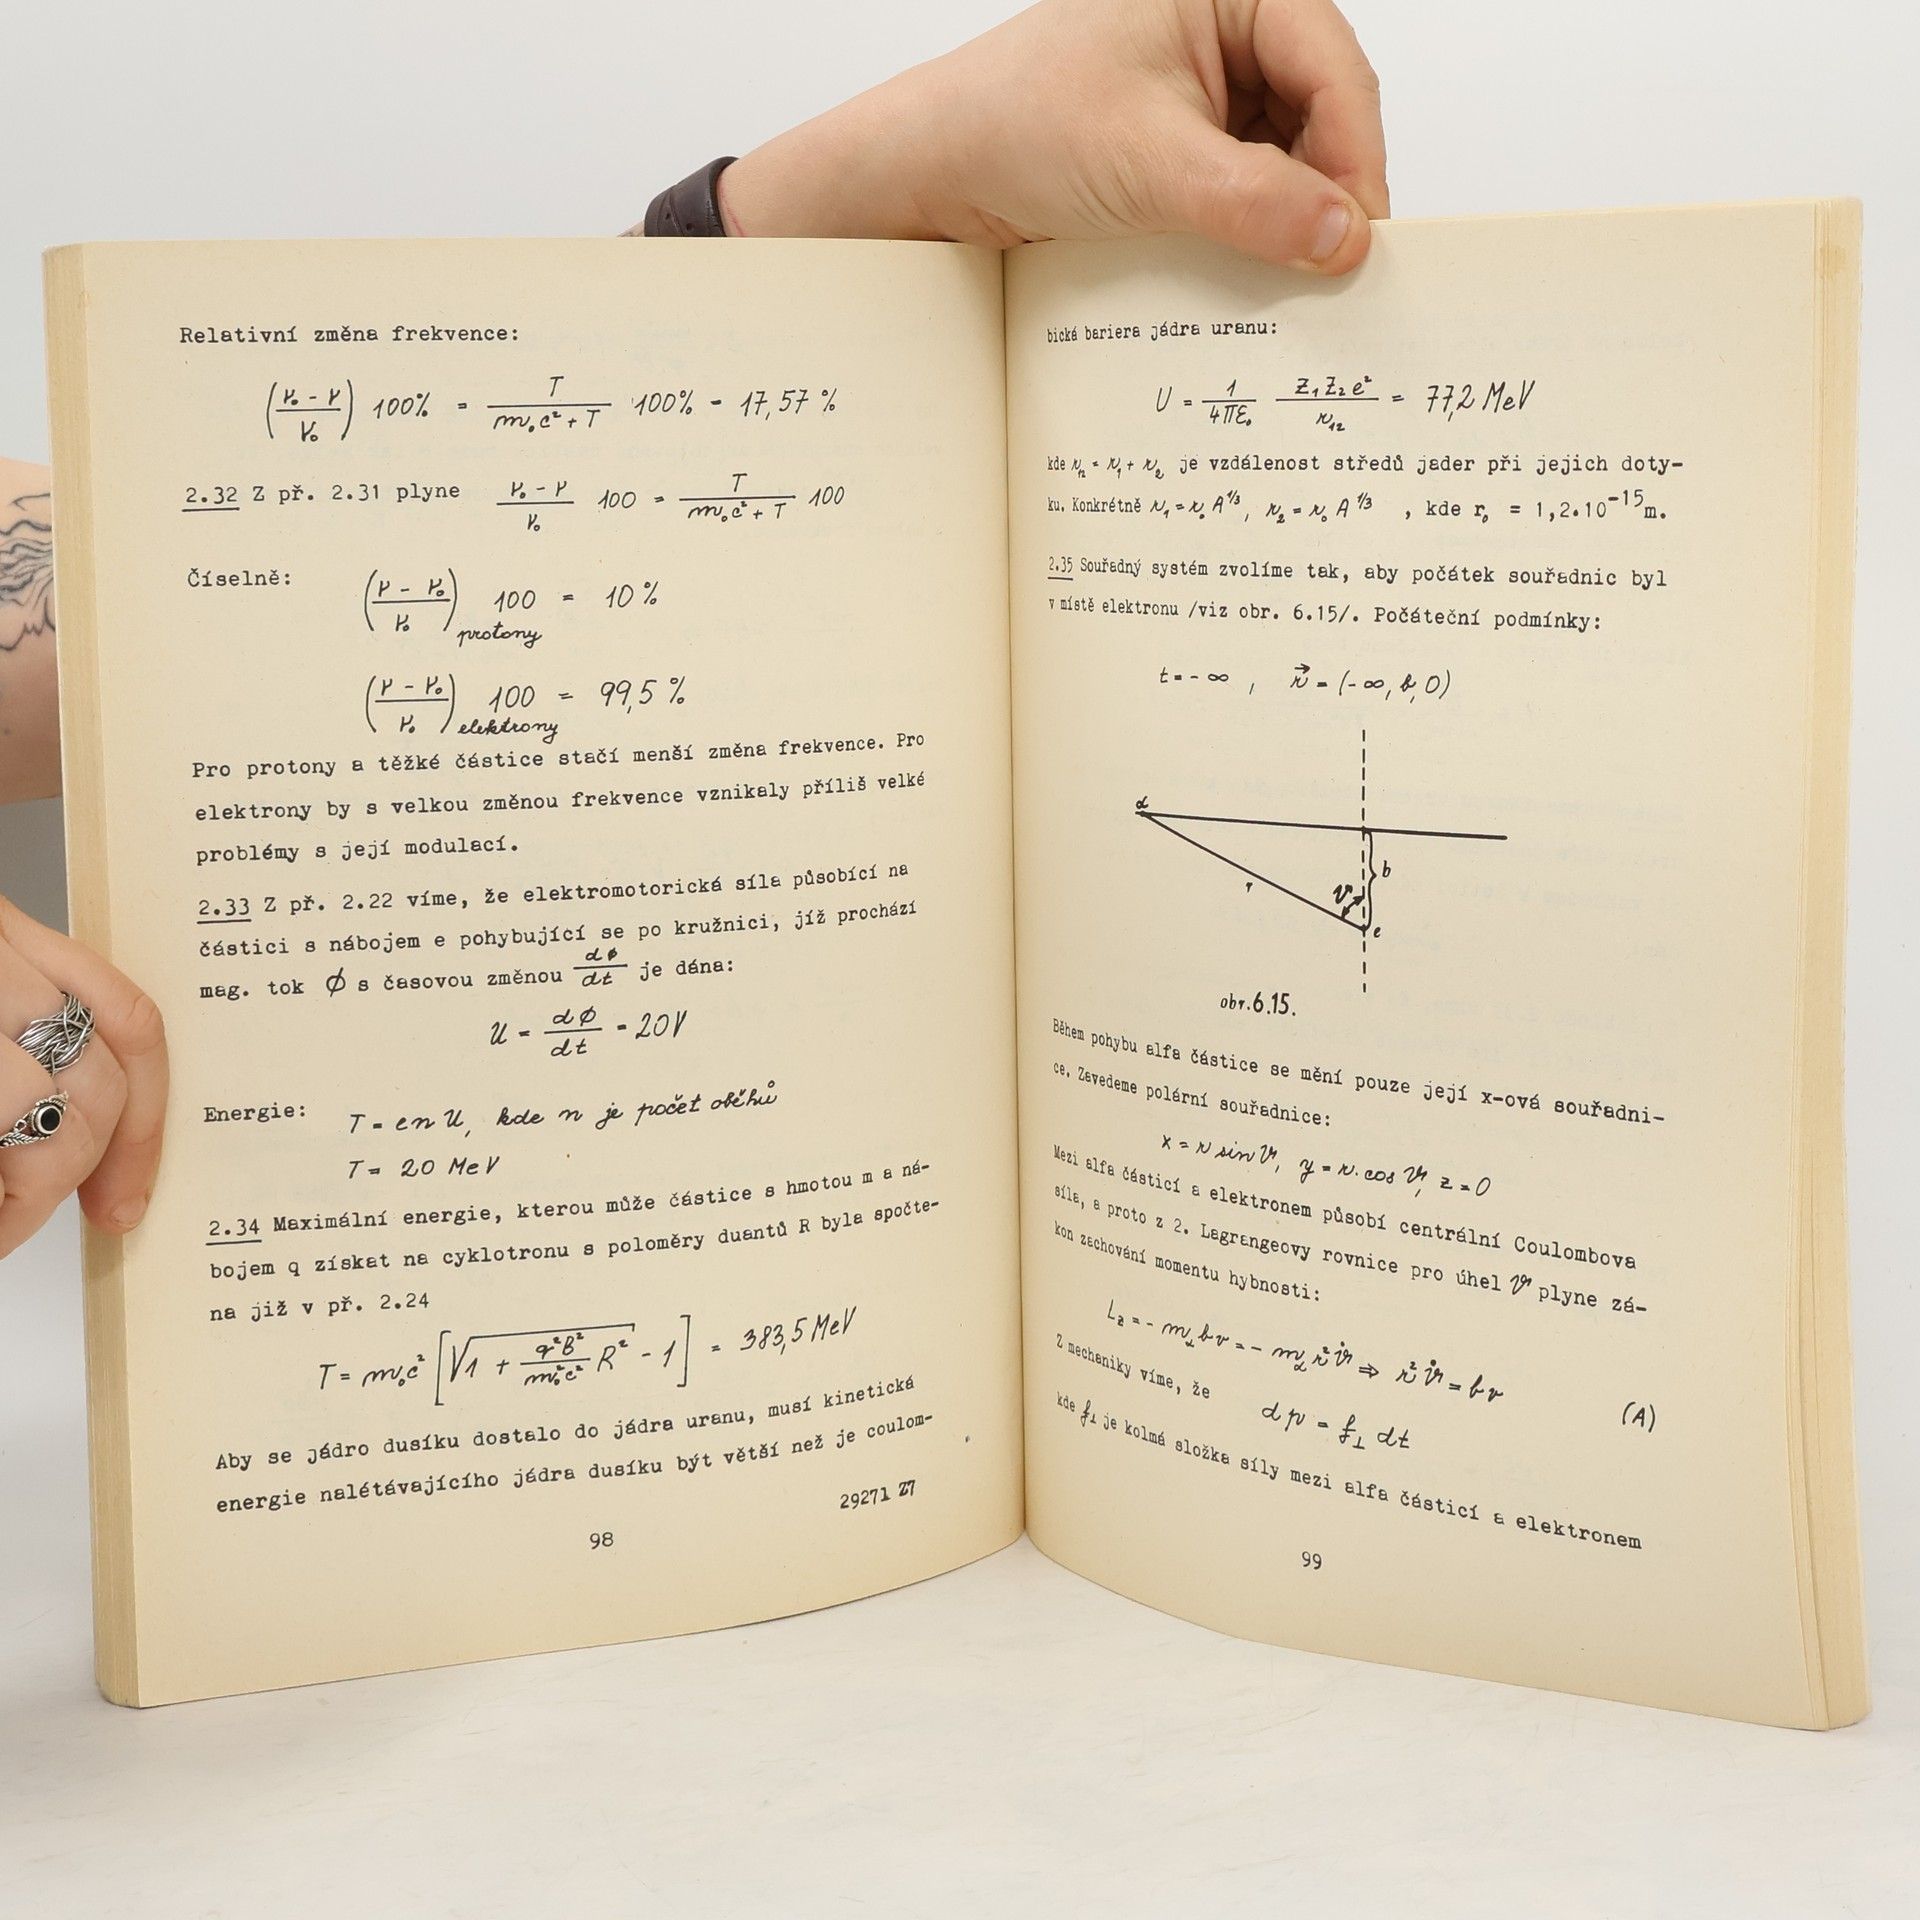 Relativní změna frekvence:
(ν₀ - ν / ν₀) 100% = T / m₀c² + T 100% = 17,57 %
2.32 Z př. 2.31 plyne ν₀ - ν / ν₀ 100 = T / m₀c² + T 100
Číselně: (ν - ν₀ / ν₀) protony 100 = 10 %
(ν - ν₀ / ν₀) elektrony 100 = 99,5 %
Pro protony a těžké částice stačí menší změna frekvence. Pro
elektrony by s velkou změnou frekvence vznikaly příliš velké
problémy s její modulací.
2.33 Z př. 2.22 víme, že elektromotorická síla působící na
částici s nábojem e pohybující se po kružnici, jíž prochází
mag. tok ∅ s časovou změnou d∅/dt je dána:
U = d∅/dt = 20V
Energie: T = enU, kde n je počet oběhů
T = 20 MeV
2.34 Maximální energie, kterou může částice s hmotou m a ná-
bojem q získat na cyklotronu s poloměry duantů R byla spočte-
na již v př. 2.24
T = m₀c² [√1 + q²B² / m₀²c² R² - 1] = 383,5 MeV
Aby se jádro dusíku dostalo do jádra uranu, musí kinetická
energie nalétávajícího jádra dusíku být větší než je coulom-
29271 Z7
98
bická bariera jádra uranu:
U = 1 / 4πε₀ Z₁Z₂e² / r₁₂ = 77,2 MeV
kde r₁₂ = r₁ + r₂ je vzdálenost středů jader při jejich doty-
ku. Konkrétně r₁ = r₀ A^1/3, r₂ = r₀ A^1/3 , kde r₀ = 1,2.10⁻¹⁵m.
2.35 Souřadný systém zvolíme tak, aby počátek souřadnic byl
v místě elektronu /viz obr. 6.15/. Počáteční podmínky:
t = - ∞ , r⃗ = (- ∞, b, 0)
α
b
r
ϑ
e
obr.6.15.
Během pohybu alfa částice se mění pouze její x-ová souřadni-
ce. Zavedeme polární souřadnice:
x = r sin ϑ, y = r. cos ϑ, z = 0
Mezi alfa částicí a elektronem působí centrální Coulombova
síla, a proto z 2. Lagrangeovy rovnice pro úhel ϑ plyne zá-
kon zachování momentu hybnosti:
L_z = - m_α b v = - m_α r² ϑ̇ ⇒ r² ϑ̇ = b v
(A)
Z mechaniky víme, že dp = f⊥ dt
kde f⊥ je kolmá složka síly mezi alfa částicí a elektronem
99